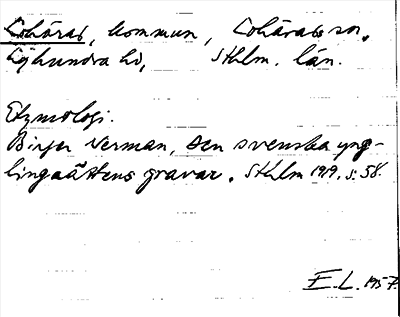 Lohärad, kommun, Lohärads sn.
Lyhundra hd, Sthlm. län.
Etymologi.
Birger Nerman, Den svenska yng-
lingaättens gravar. Sthlm 1919. s. 58.
E. L. 1957.